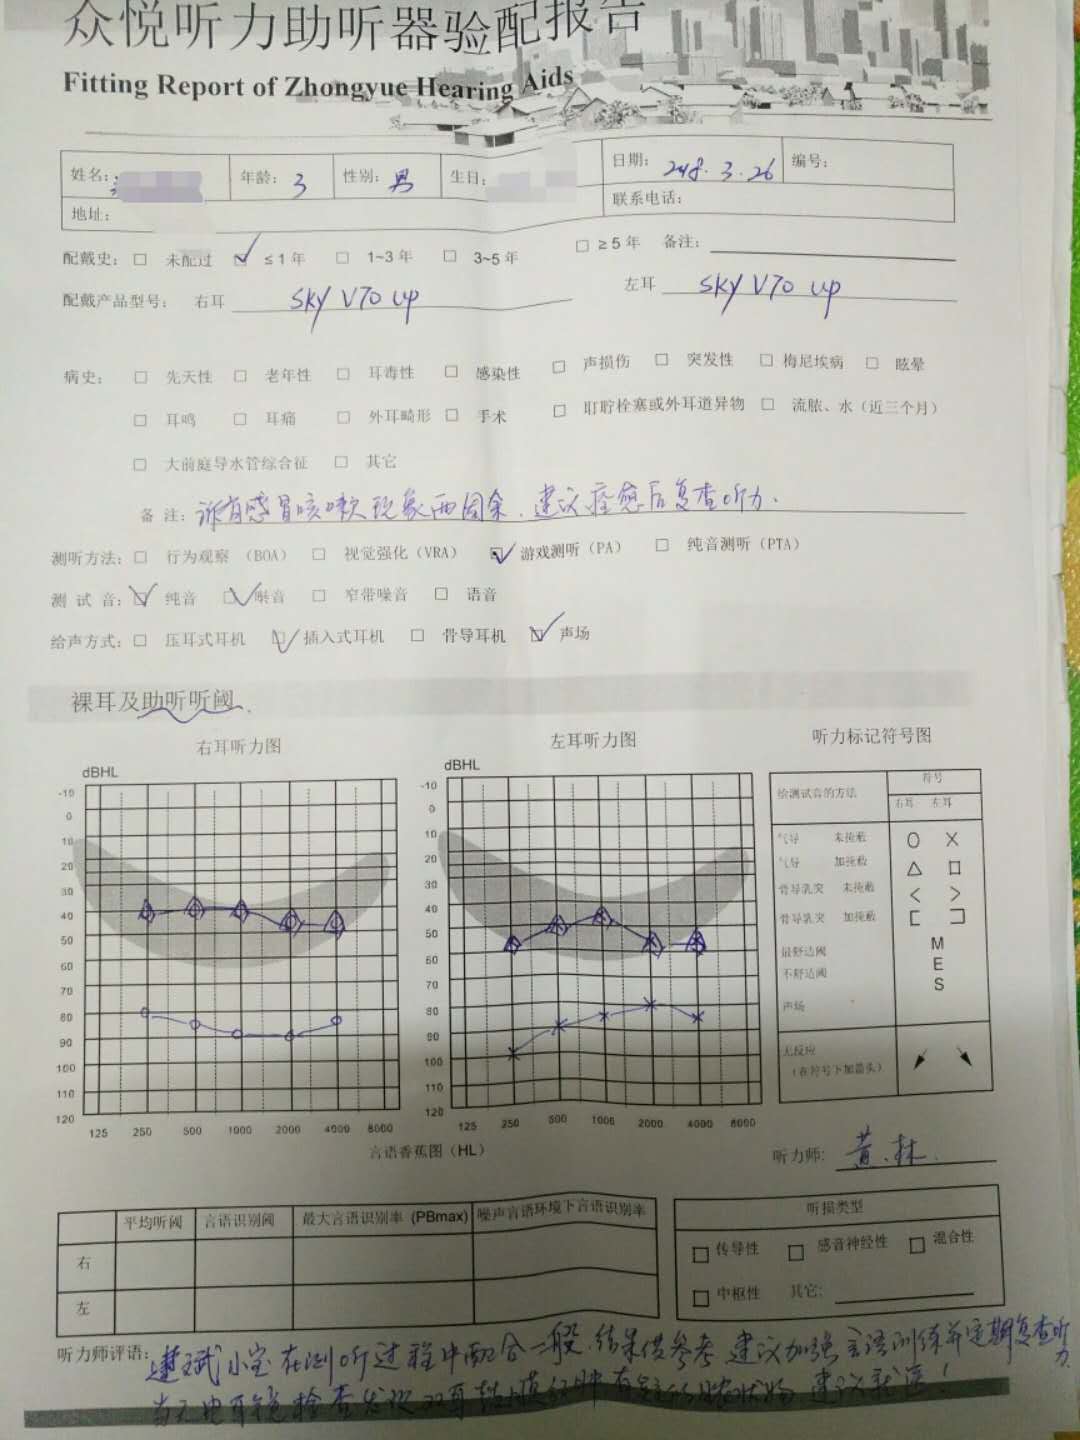 众悦听力助听器验配报告
Fitting Report of Zhongyue Hearing Aids
姓名: 年龄: 3 性别: 男 生日: 日期: 2018.3.26 编号:
地址: 联系电话:
配戴史: □ 未配过 ☑ ≤1年 □ 1~3年 □ 3~5年 □ ≥5年 备注:
配戴产品型号: 右耳 sky V70 up 左耳 sky V70 up
病史: □ 先天性 □ 老年性 □ 耳毒性 □ 感染性 □ 声损伤 □ 突发性 □ 梅尼埃病 □ 眩晕
□ 耳鸣 □ 耳痛 □ 外耳畸形 □ 手术 □ 耵聍栓塞或外耳道异物 □ 流脓、水(近三个月)
□ 大前庭导水管综合征 □ 其它
备注: 诉有感冒咳嗽现象两周余,建议痊愈后复查听力.
测听方法: □ 行为观察 (BOA) □ 视觉强化(VRA) ☑ 游戏测听(PA) □ 纯音测听(PTA)
测试音: ☑ 纯音 ☑ 啭音 □ 窄带噪音 □ 语音
给声方式: □ 压耳式耳机 ☑ 插入式耳机 □ 骨导耳机 ☑ 声场
裸耳及助听听阈
右耳听力图 左耳听力图 听力标记符号图
dBHL dBHL
-10 -10
0 0
10 10
20 20
30 30
40 40
50 50
60 60
70 70
80 80
90 90
100 100
110 110
120 120
125 250 500 1000 2000 4000 8000 125 250 500 1000 2000 4000 8000
言语香蕉图(HL)
给测试音的方法 符号
右耳 左耳
气导 未掩蔽 O X
气导 加掩蔽 △ □
骨导乳突 未掩蔽 < >
骨导乳突 加掩蔽 [ ]
最舒适阈 M
不舒适阈 E
声场 S
无反应
(在符号下加箭头)
听力师: 黄林
平均听阈 言语识别阈 最大言语识别率 (PBmax) 噪声言语环境下言语识别率
右
左
听损类型
□ 传导性 □ 感音神经性 □ 混合性
□ 中枢性 其它:
听力师评语: 小宝在测听过程中配合一般,结果供参考 建议加强言语训练并定期复查听力
电耳镜检查发现双耳鼓膜红肿 有 状物,建议就医!